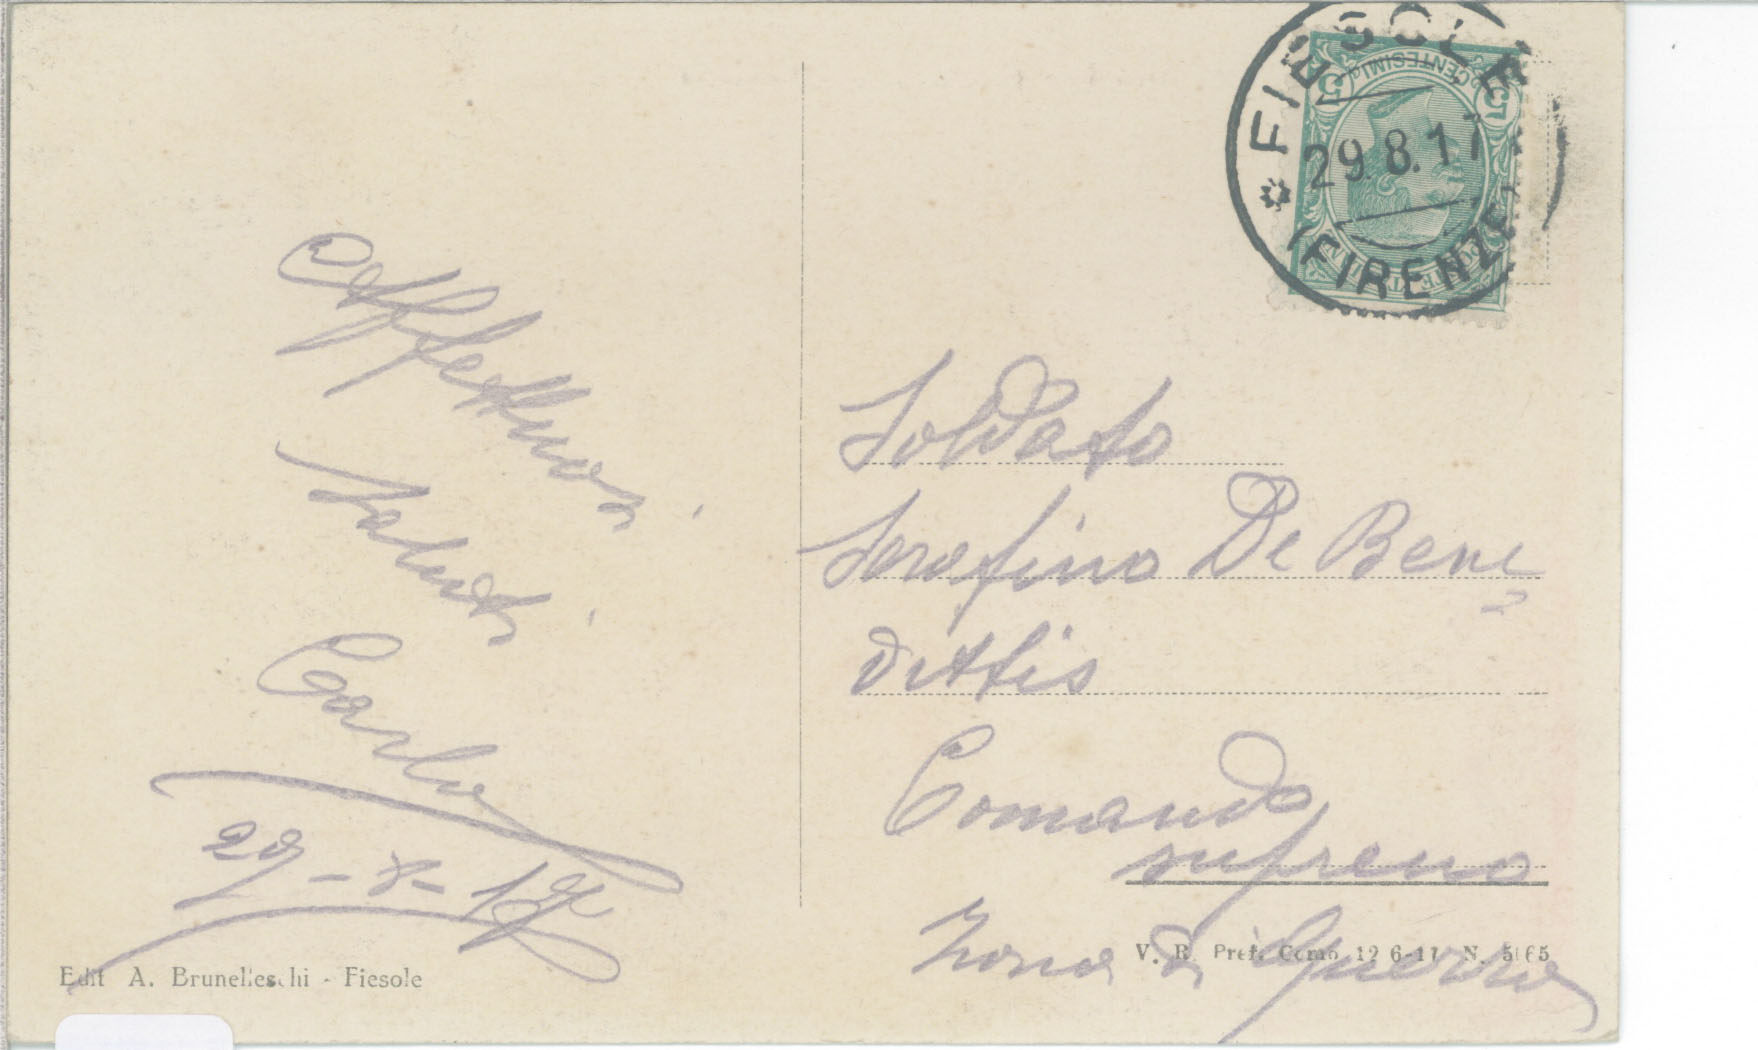 Affettuosi
saluti
Carlo
29-8-17
Edit A. Brunelleschi - Fiesole
FIESOLE
29.8.17
(FIRENZE)
CENTESIMI
5 5
POSTE ITALIANE
Soldato
Serafino De Bene
dittis
Comando
supremo
Zona di Guerra
V. R. Pref. Como 12 6-17 N. 5165